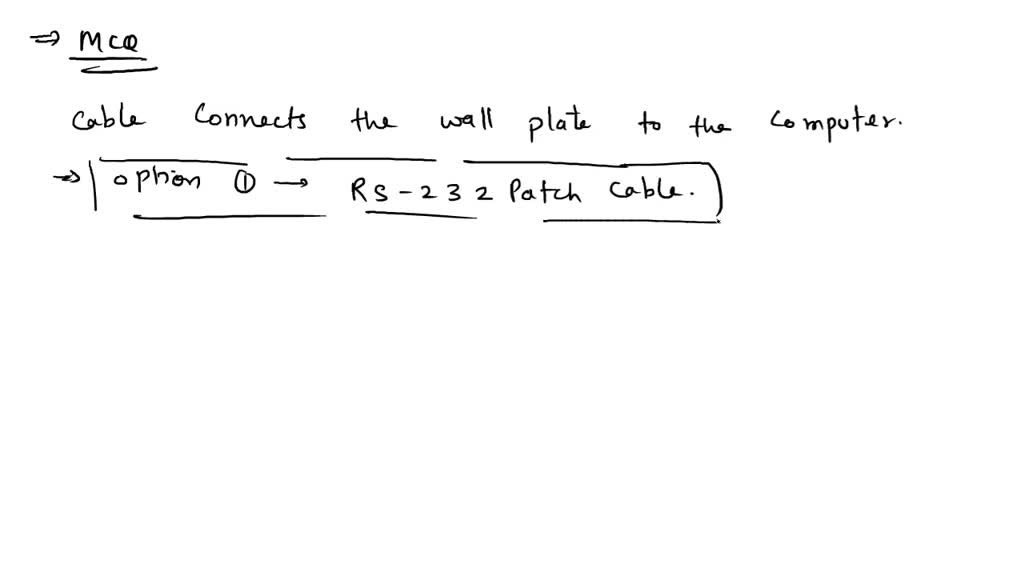 ⇒ MCQ
Cable Connects the wall plate to the computer.
→ option ① → RS-232 Patch Cable.